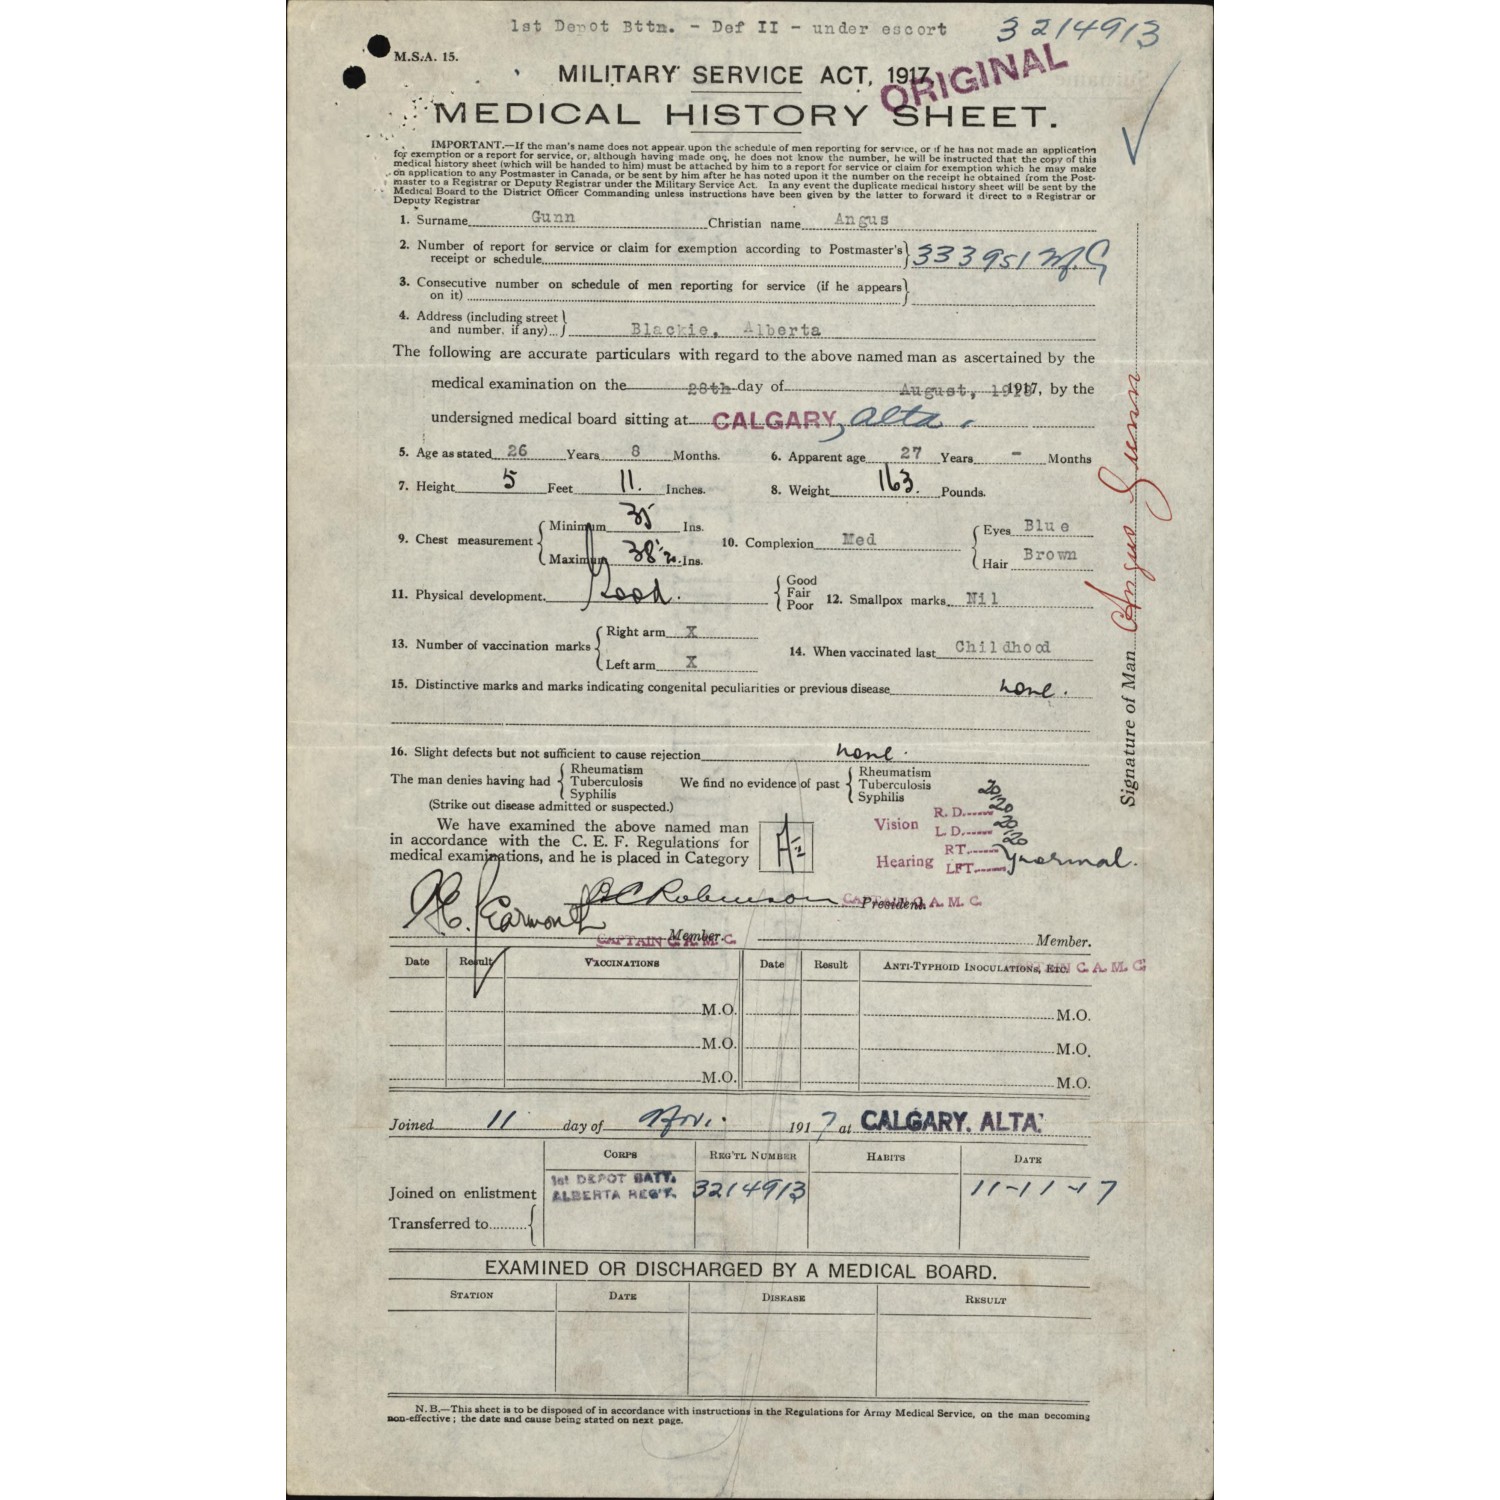 1st Depot Bttn. - Def II - under escort 3214913
M.S.A. 15.
MILITARY SERVICE ACT, 1917.
ORIGINAL
MEDICAL HISTORY SHEET.
IMPORTANT.—If the man's name does not appear upon the schedule of men reporting for service, or if he has not made an application
for exemption or a report for service, or, although having made one, he does not know the number, he will be instructed that the copy of this
medical history sheet (which will be handed to him) must be attached by him to a report for service or claim for exemption which he may make
on application to any Postmaster in Canada, or be sent by him after he has noted upon it the number on the receipt he obtained from the Post-
master to a Registrar or Deputy Registrar under the Military Service Act. In any event the duplicate medical history sheet will be sent by the
Medical Board to the District Officer Commanding unless instructions have been given by the latter to forward it direct to a Registrar or
Deputy Registrar
1. Surname Gunn Christian name Angus
2. Number of report for service or claim for exemption according to Postmaster's
receipt or schedule 333951
3. Consecutive number on schedule of men reporting for service (if he appears
on it)
4. Address (including street
and number, if any) Blackie, Alberta
The following are accurate particulars with regard to the above named man as ascertained by the
medical examination on the 28th day of August, 1918 1917, by the
undersigned medical board sitting at CALGARY, Alta.
5. Age as stated 26 Years 8 Months. 6. Apparent age 27 Years - Months
7. Height 5 Feet 11. Inches. 8. Weight 163. Pounds.
9. Chest measurement Minimum 35 Ins.
Maximum 38½ Ins.
10. Complexion Med
Eyes Blue
Hair Brown
11. Physical development. Good.
Good
Fair
Poor
12. Smallpox marks Nil
13. Number of vaccination marks
Right arm X
Left arm X
14. When vaccinated last Childhood
15. Distinctive marks and marks indicating congenital peculiarities or previous disease none.
16. Slight defects but not sufficient to cause rejection none.
The man denies having had
Rheumatism
Tuberculosis
Syphilis
We find no evidence of past
Rheumatism
Tuberculosis
Syphilis
(Strike out disease admitted or suspected.)
Signature of Man Angus Gunn
We have examined the above named man
in accordance with the C. E. F. Regulations for
medical examinations, and he is placed in Category
A2
Vision R. D. 20/20
L. D. 20/20
Hearing RT.
LFT. Normal.
Robinson President.
CAPTAIN C. A. M. C.
Member.
CAPTAIN C. A. M. C.
Member.
CAPTAIN C. A. M. C.
Date Result VACCINATIONS Date Result ANTI-TYPHOID INOCULATIONS, ETC.
M.O. M.O.
M.O. M.O.
M.O. M.O.
Joined 11 day of Nov. 1917 at CALGARY, ALTA.
CORPS REG'TL NUMBER HABITS DATE
Joined on enlistment 1st DEPOT BATT. ALBERTA REG'T. 3214913 11-11-17
Transferred to
EXAMINED OR DISCHARGED BY A MEDICAL BOARD.
STATION DATE DISEASE RESULT
N.B.—This sheet is to be disposed of in accordance with instructions in the Regulations for Army Medical Service, on the man becoming
non-effective; the date and cause being stated on next page.